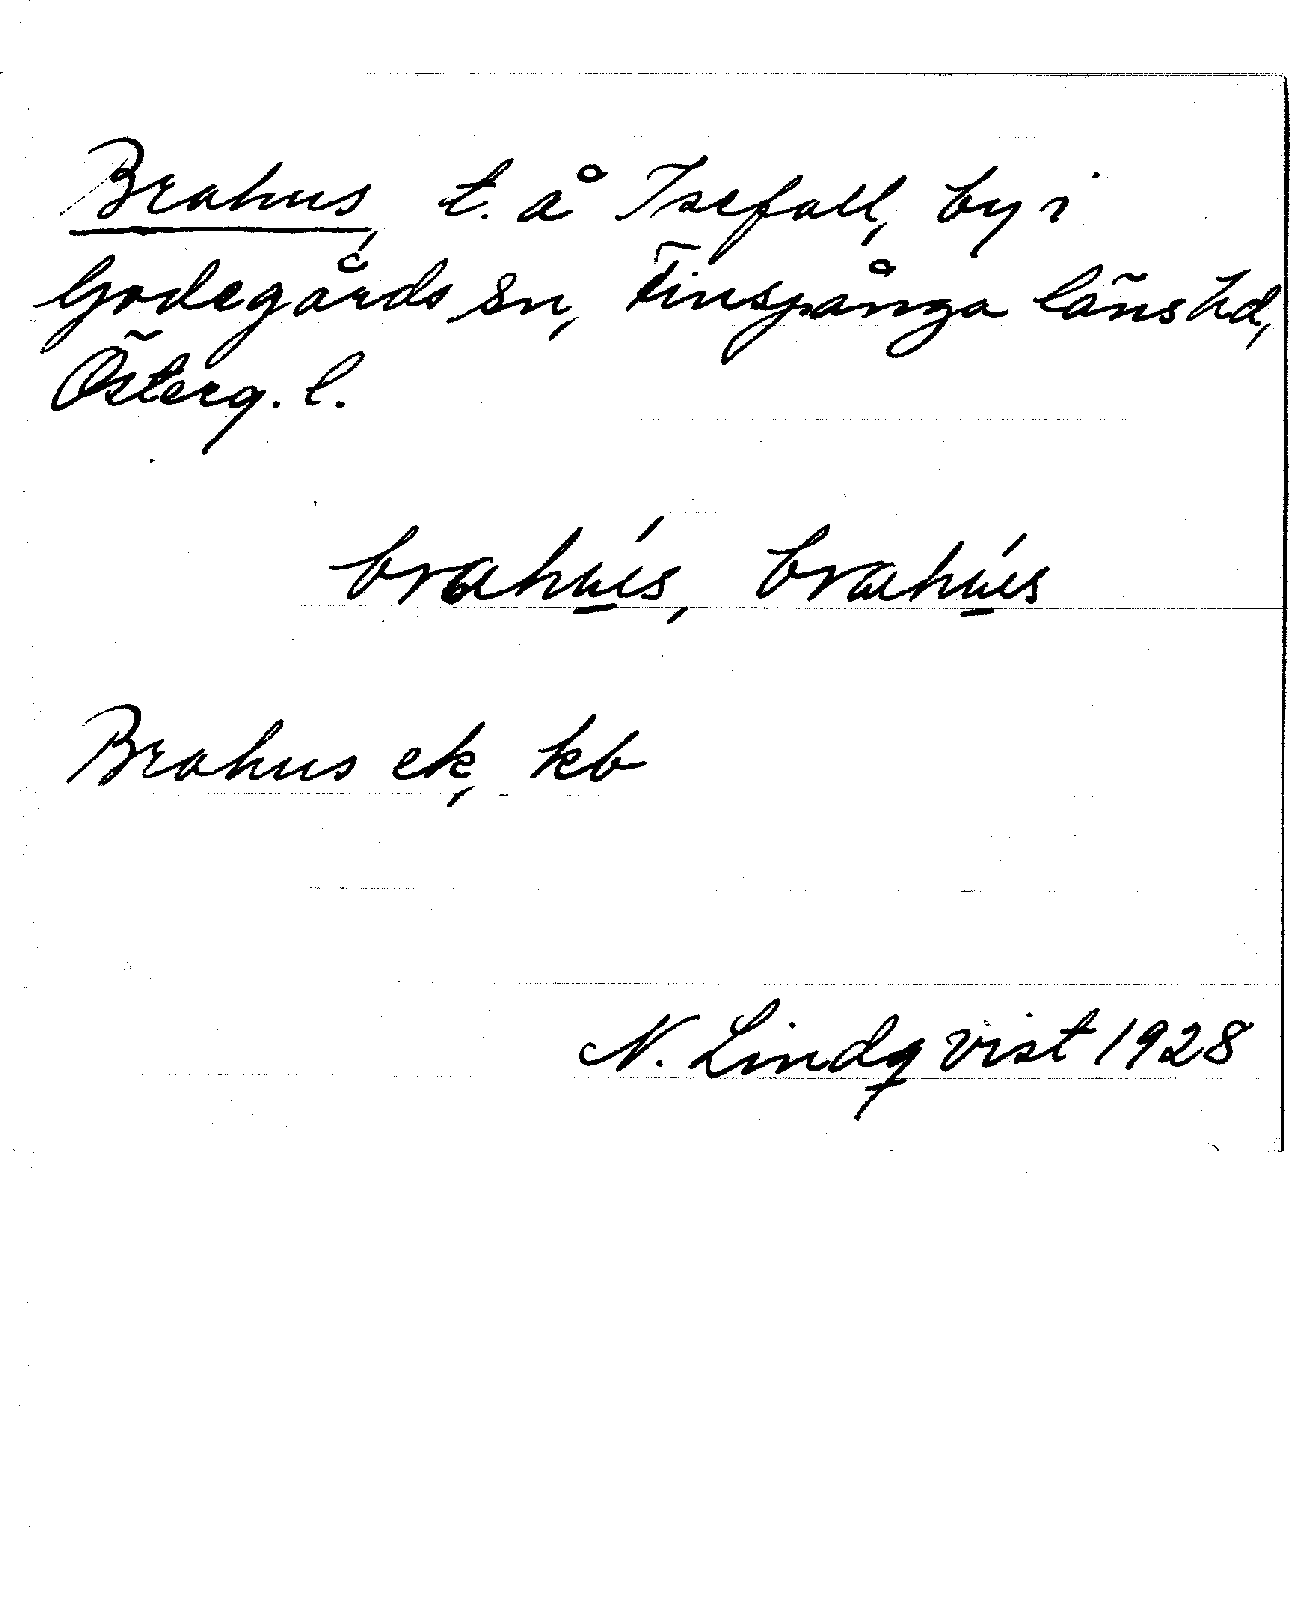 Brahus, t. å Isefall, by i
Godegårds sn, Finspånga läns hd,
Österg. l.
brahú̲s, brahú̲s
Brahus ek, kb
N. Lindqvist 1928